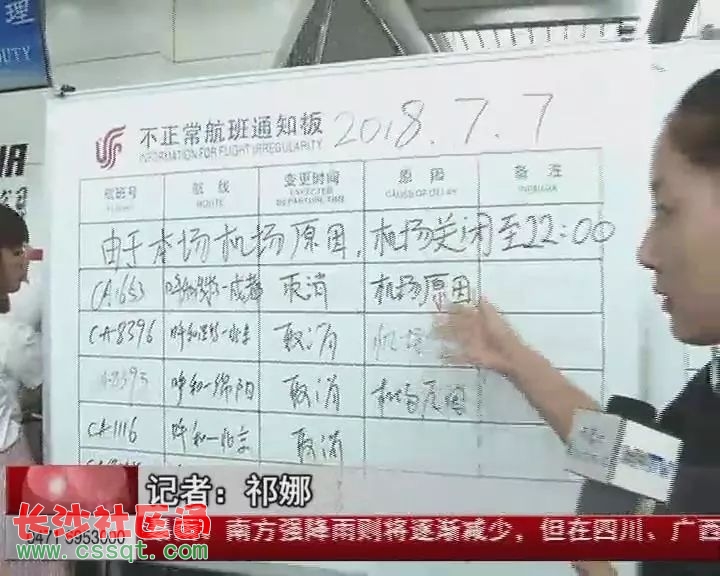 理
UTY
不正常航班通知板 2018.7.7
INFORMATION FOR FLIGHT IRREGULARITY
航班号 航线 变更时间 原因 备注
ROUTE EXPECTED DEPARTURE TIME CAUSE OF DELAY
由于本场机场原因，机场关闭至22:00
取消 机场原因
CA8396 取消
8393 呼和-绵阳 取消 机场原因
CA1116 呼和-北京 取消
记者：祁娜
长沙社区通
0471 6953000
www.cssqt.com
南方强降雨则将逐渐减少，但在四川、广西